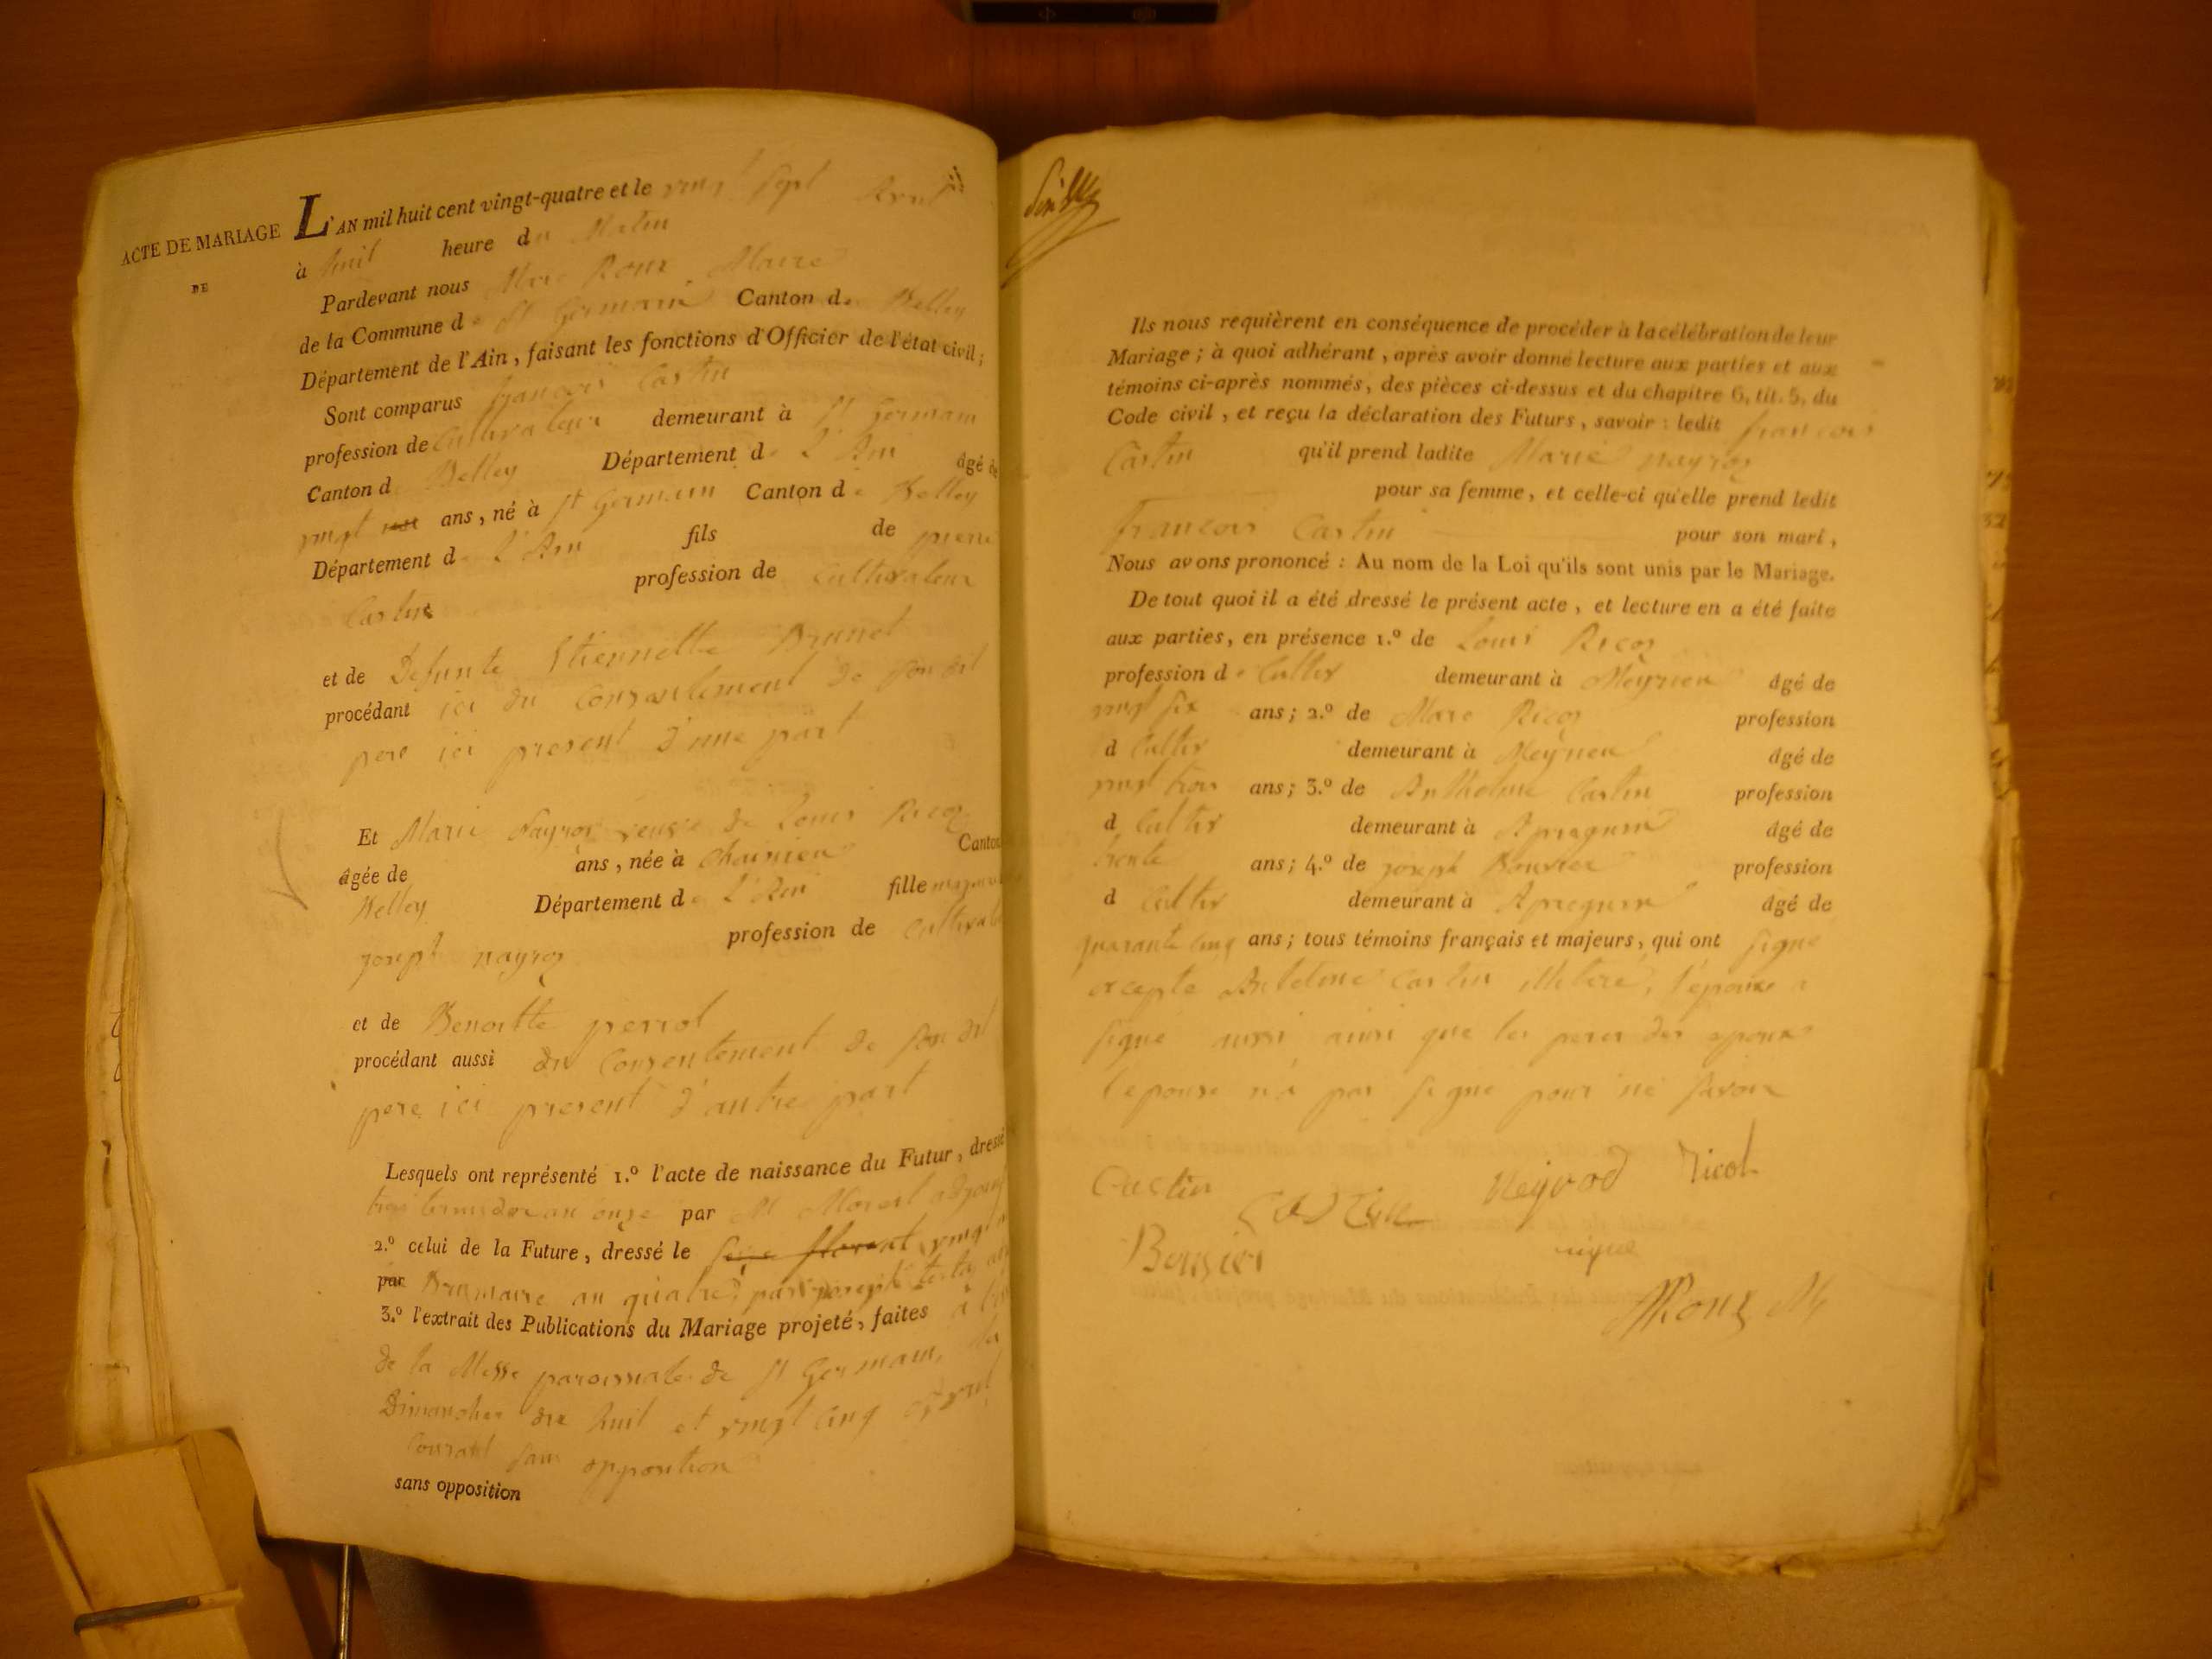 ACTE DE MARIAGE
DE
L'AN mil huit cent vingt-quatre et le vingt sept Avril
à huit heure du Matin
Pardevant nous Marc Roux Maire
de la Commune de St Germain Canton de Belley
Département de l'Ain, faisant les fonctions d'Officier de l'état civil;
Sont comparus francois Castin
profession de Cultivateur demeurant à St Germain
Canton d Belley Département de L'Ain âgé de
vingt ans, né à St Germain Canton de Belley
Département de L'Ain fils de pierre
Castin profession de Cultivateur
et de Defunte Etiennette Brunet
procédant ici du Consentement de son dit
pere ici present d'une part
Et Marie Nayroz veuve de Louis Ricoz
âgée de ans, née à Canton
Belley Département de L'Ain fille
joseph nayroz profession de
et de Benoitte perrot
procédant aussi du Consentement de son dit
pere ici present d'autre part
Lesquels ont représenté 1.º l'acte de naissance du Futur, dressé
an onze par M Morest
2.º celui de la Future, dressé le
par Brumaire an quatre, par joseph
3.º l'extrait des Publications du Mariage projeté, faites à
de la Messe paroissiale de St Germain, la
Dimanches dix huit et vingt cinq avril
Courant sans opposition
sans opposition
Ils nous requièrent en conséquence de procéder à la célébration de leur
Mariage; à quoi adhérant, après avoir donné lecture aux parties et aux
témoins ci-après nommés, des pièces ci-dessus et du chapitre 6, tit. 5, du
Code civil, et reçu la déclaration des Futurs, savoir : ledit francois
Castin qu'il prend ladite Marie nayroz
pour sa femme, et celle-ci qu'elle prend ledit
francois Castin pour son mari,
Nous avons prononcé : Au nom de la Loi qu'ils sont unis par le Mariage.
De tout quoi il a été dressé le présent acte, et lecture en a été faite
aux parties, en présence 1.º de Louis Ricoz
profession de Cultiv demeurant à Meyrieu âgé de
vingt six ans; 2.º de Marc Ricoz profession
d Cultiv demeurant à Meyrieu âgé de
vingt trois ans; 3.º de Anthelme Castin profession
d Cultiv demeurant à Apregnin âgé de
trente ans; 4.º de joseph Bouvier profession
d Cultiv demeurant à Apregnin âgé de
quarante cinq ans; tous témoins français et majeurs, qui ont signé
excepte Antelme Castin illitéré, l'epoux a
signé aussi ainsi que les peres des epoux
l'epouse n'a pas signé pour ne savoir
Castin Castin Neyrod Ricol
Bouvier
Roux M